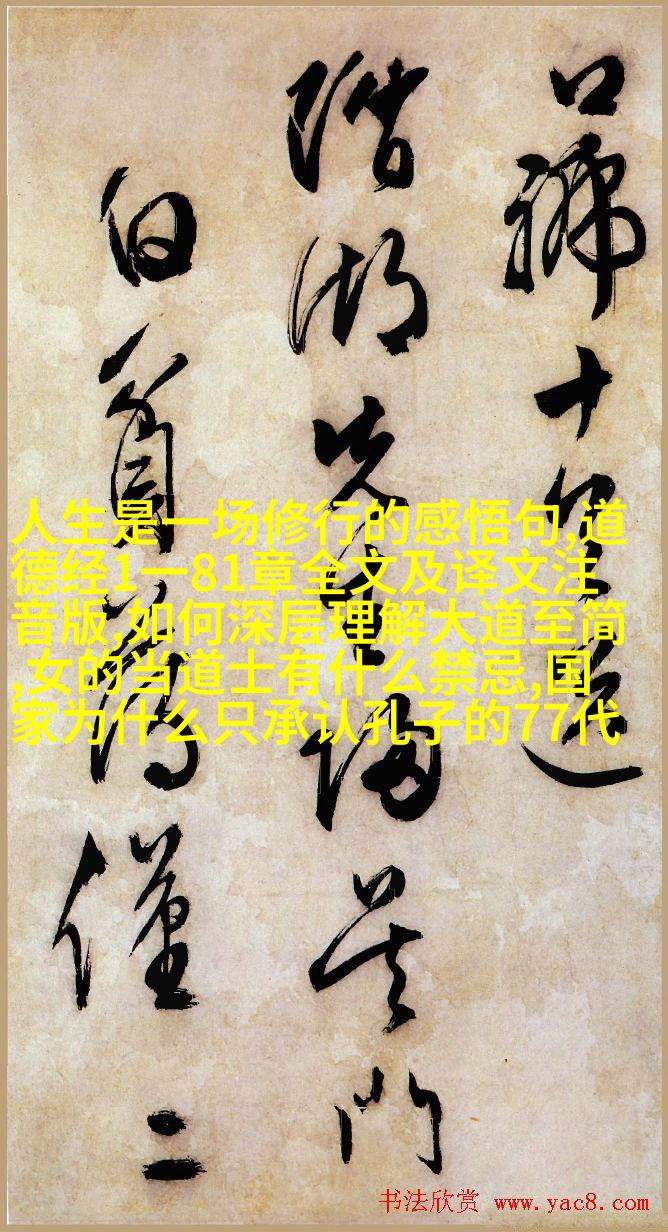 口 十
湖先生歸吴門
僅二
人生是一场修行的感悟句,道
德经1一81章全文及译文注
音版,如何深层理解大道至简
,女的当道士有什么禁忌,国
家为什么只承认孔子的77代
书法欣赏 www.yac8.com